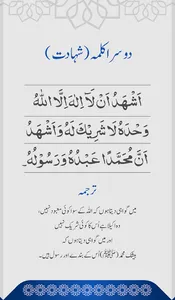 دوسرا کلمہ (شہادت)
اَشْهَدُ اَنْ لَّآ اِلٰهَ اِلَّا اللهُ
وَحْدَهٗ لَا شَرِيْكَ لَهٗ وَاَشْهَدُ
اَنَّ مُحَمَّدًا عَبْدُهٗ وَرَسُوْلُهٗ۔
ترجمہ
میں گواہی دیتا ہوں کہ اللہ کے سوا کوئی معبود نہیں،
وہ اکیلا ہے اس کا کوئی شریک نہیں
اور میں گواہی دیتا ہوں کہ
بیشک محمد (ﷺ) اس کے بندے اور رسول ہیں۔